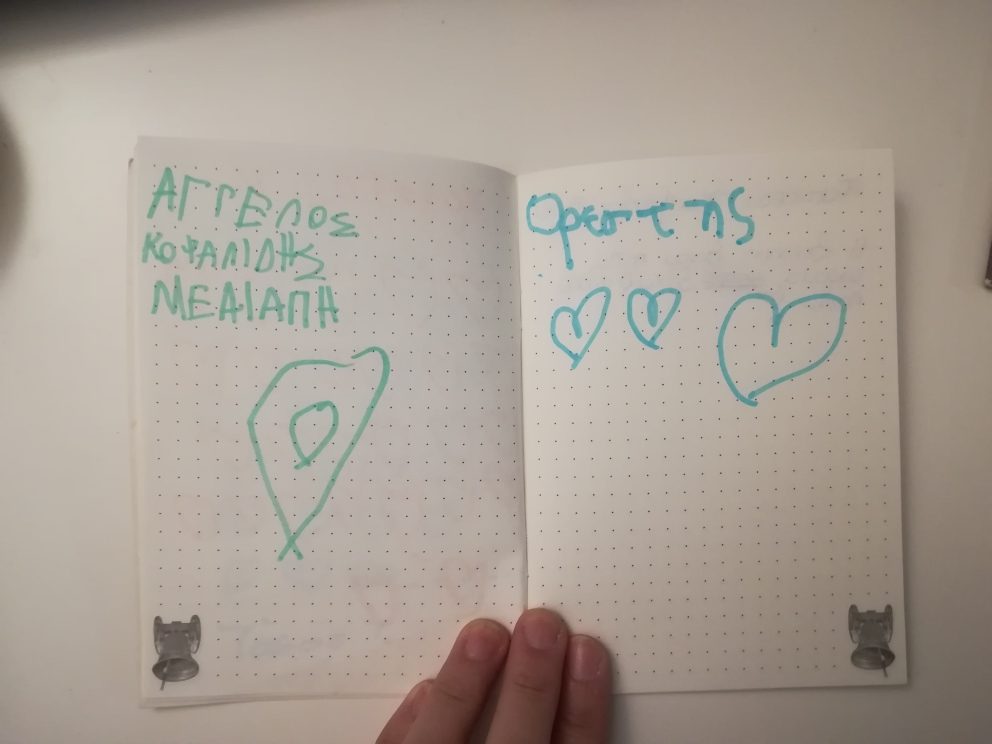 ΑΓΓΕΛΟΣ
ΚΟΨΑΛΙΔΗΣ
ΜΕ ΑΓΑΠΗ
Ορεστης